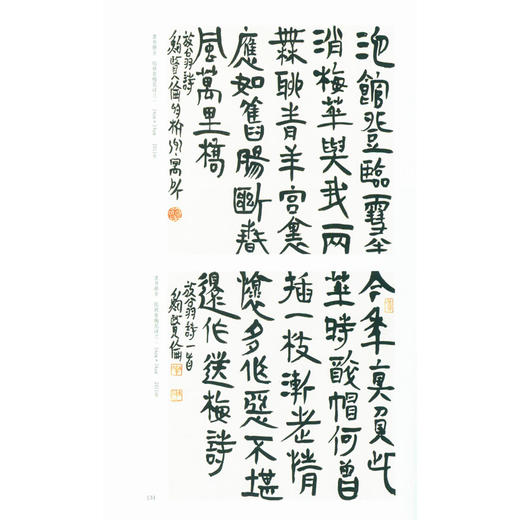 池館登臨雪半
消梅華與我兩
無聊青羊宮裏
應如舊腸斷春
風萬里橋
放翁詩
鮑賢倫
今年真負此
華時醉帽何曾
插一枝漸老情
懷多作惡不堪
還作送梅詩
放翁詩一首
鮑賢倫